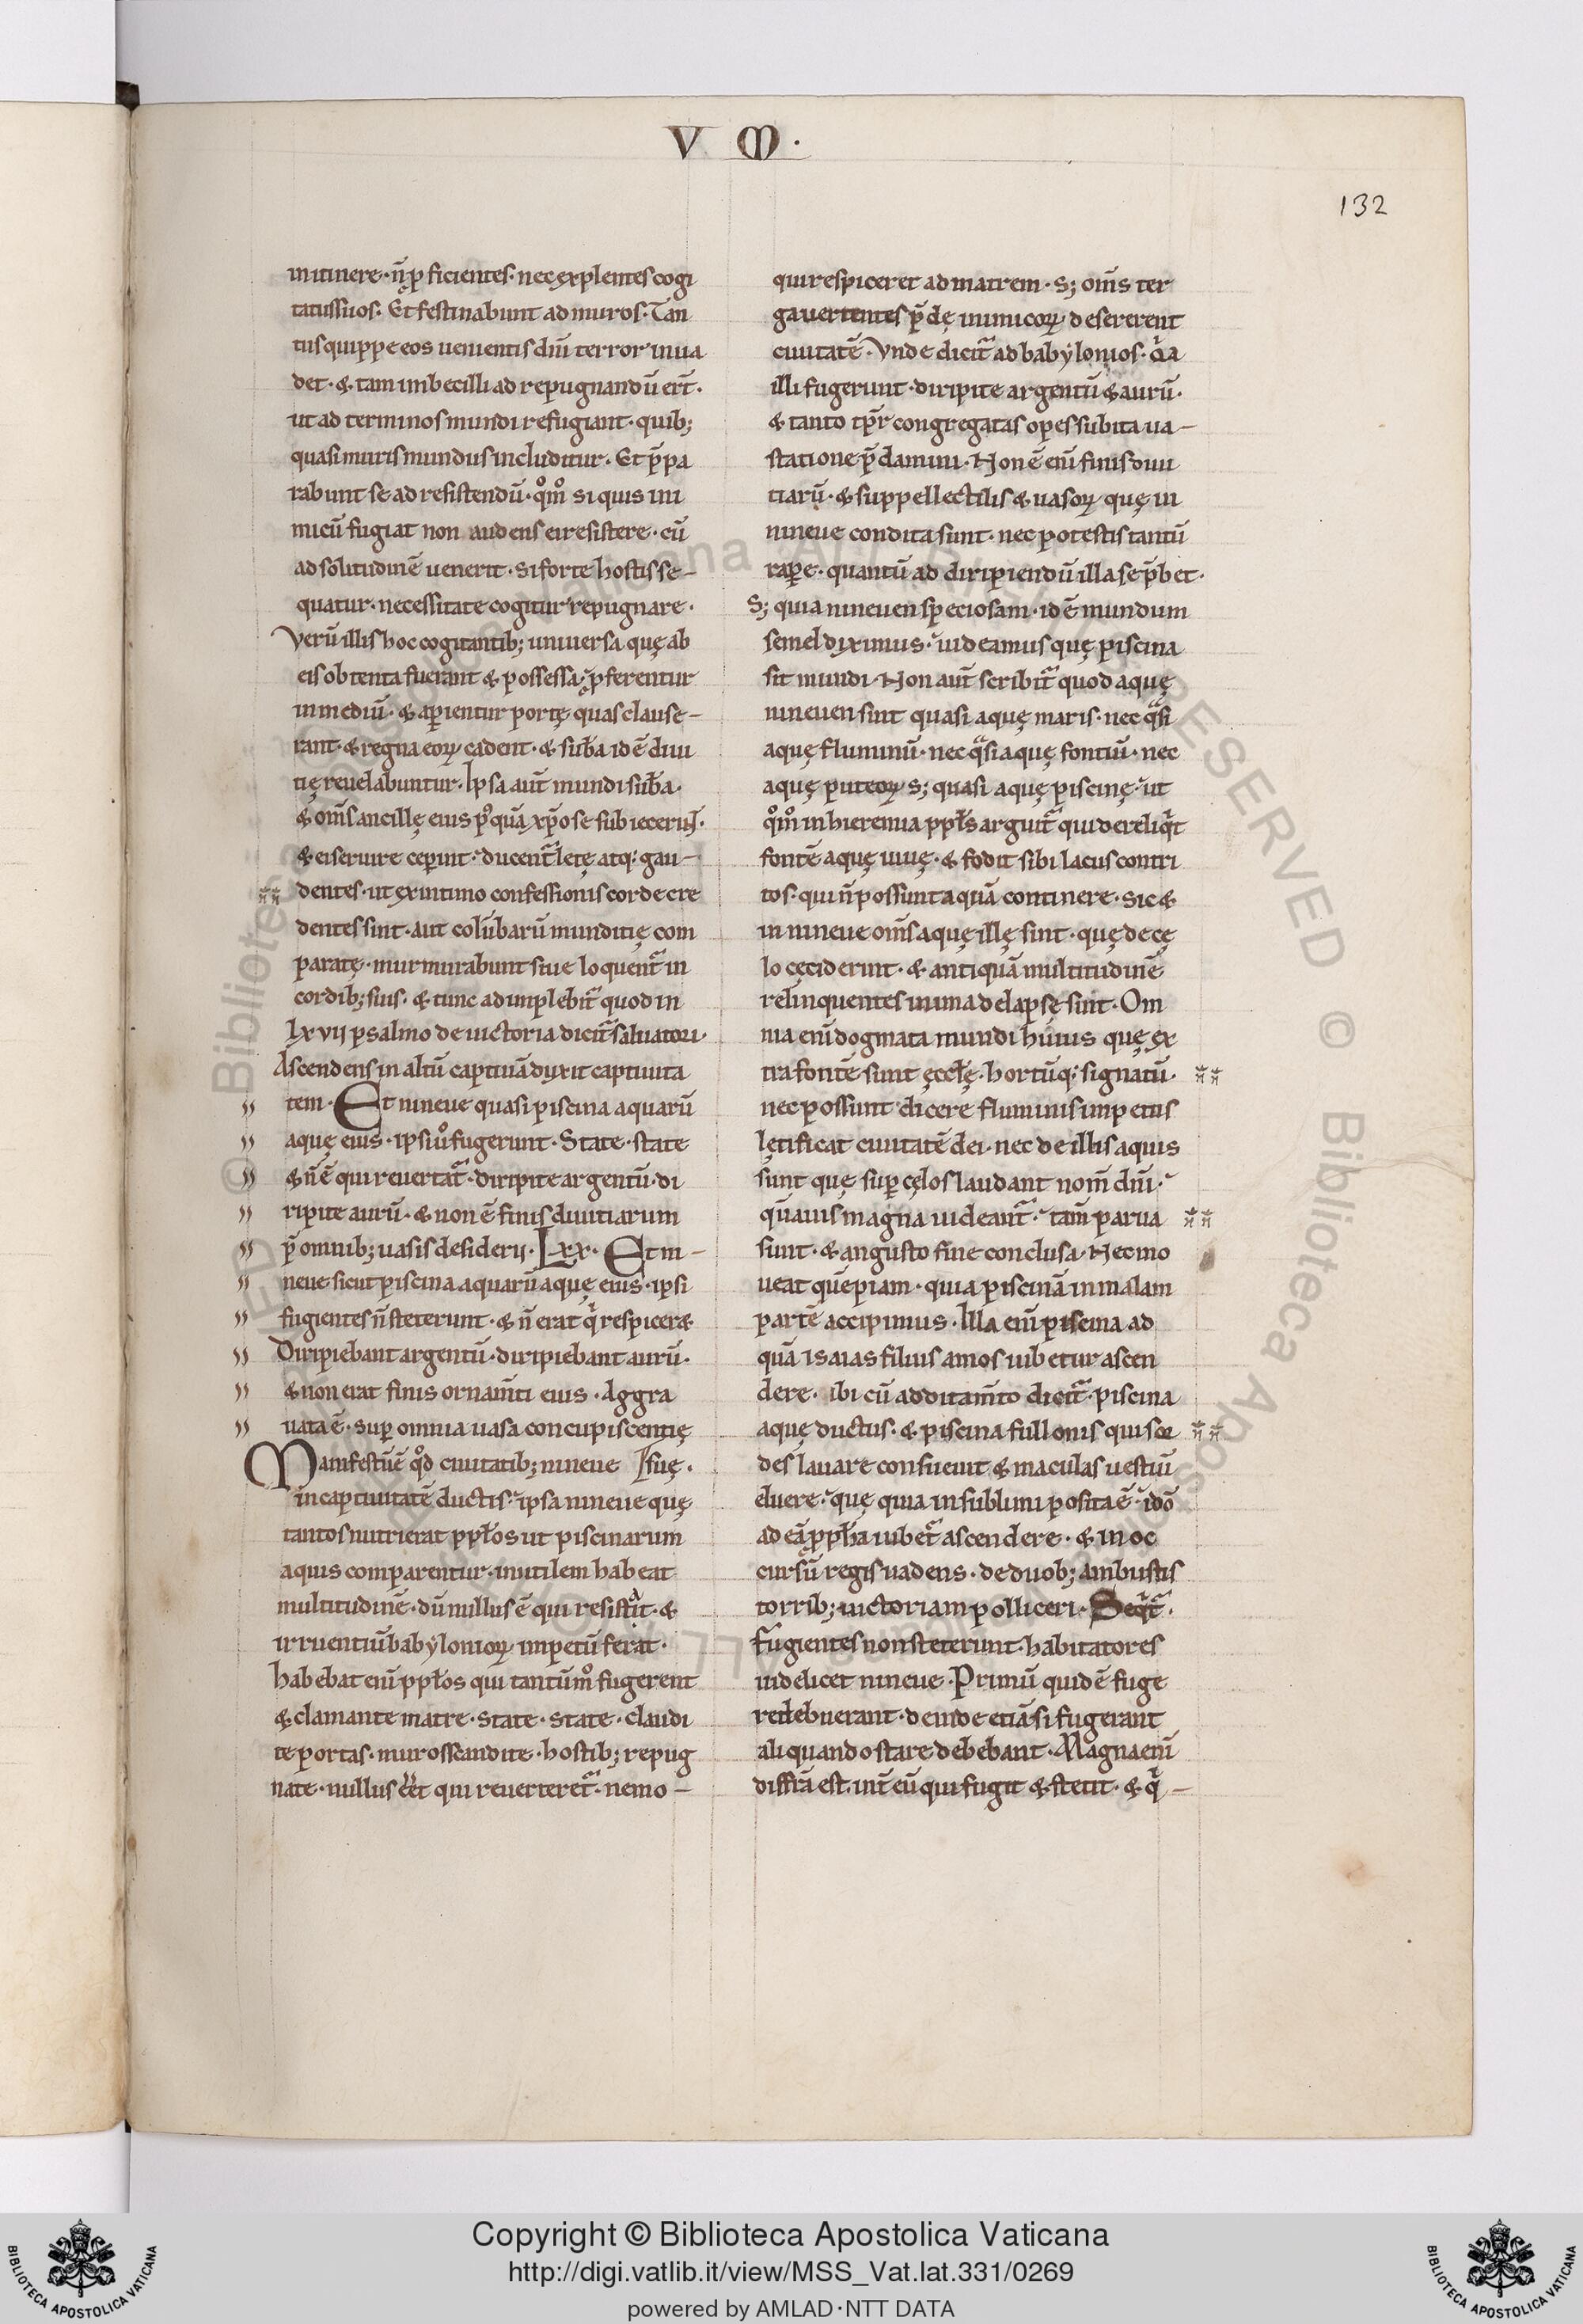 V M ·
132
in itinere · n̄ ꝓficientes · nec explentes cogi
tatus suos · Et festinabunt ad muros · Tan
tus quippe eos uenientis dn̄i terror inua
det · & tam imbecilli ad repugnandū er̄t ·
ut ad terminos mundi refugiant · quib;
quasi muris mundus includitur · Et p̄pa
rabunt se ad resistendū · qͦmͦ si quis ini
micū fugiat non audens ei resistere · cū
ad solitudinē uenerit · si forte hostis se–
quatur · necessitate cogitur repugnare ·
Verū illis hoc cogitantib; uniuersa quę ab
eis obtenta fuerant & possessa ꝓferentur
in mediū · & aperientur portę quas clause–
rant · & regna eoꝝ cadent · & sub̄a id ē diui
tię reuelabuntur · Ipsa aut̄ mundi sub̄a ·
& om̄s ancillę eius pͦquā xp̄o se subiecerūt ·
& ei seruire ceperint · ducent᷑ lętę atq; gau–
dentes · ut ex intimo confessionis corde cre
dentes sint · aut colūbarū munditię com
paratę · murmurabunt siue loquent᷑ in
cordib; suis · & tunc adimplebit᷑ quod in
lxvii psalmo de uictoria dicit᷑ saluatori ·
Ascendens in altū captiuā duxit captiuita
tem · Et nineue quasi piscina aquarū
aquę eius · ipsi uͦ fugerunt · State · state
& n̄ ē qui reuertat᷑ · diripite argentū · di
ripite aurū · & non ē finis diuitiarum
p̄ omnib; uasis desiderii · Lxx · Et ni–
neue sicut piscina aquarū aquę eius · ipsi
fugientes n̄ steterunt · & n̄ erat qͥ respicer&
Diripiebant argentū · diripiebant aurū ·
& non erat finis ornam̄ti eius · Aggra
uata ē · suꝑ omnia uasa concupiscentię
Manifestū ē qͦd ciuitatib; nineue suę ·
in captiuitatē ductis · ipsa nineue quę
tantos nutrierat ppl̄os ut piscinarum
aquis comparentur · inutilem habeat
multitudinē · dū nullus ē qui resistat · &
irruentiū babylonioꝝ impetū ferat ·
habebat eni᷑ ppl̄os qui tantūmͦ fugerent
& clamante matre · state · state · claudi
te portas · muros scandite · hostib; repug
nate · nullus eēt qui reuerteret᷑ · nemo –
qui respiceret ad matrem · S; om̄s ter
ga uertentes p̄dę inimicoꝝ desererent
ciuitatē · Vnde dicit᷑ ad babylonios · qͥa
illi fugerunt · diripite argentū & aurū ·
& tanto tp̄r congregatas opes subita ua–
statione p̄damini · Non ē eni᷑ finis diui
tiarū · & suppellectilis & uasoꝝ quę in
nineue condita sunt · nec potestis tantū
raꝑe · quantū ad diripiendū illa se p̄bet ·
S; quia nineuen speciosam · id ē mundum
semel diximus · uideamus quę piscina
sit mundi · Non aut̄ scribit᷑ quod aquę
nineuen sint quasi aquę maris · nec qᷓsi
aquę fluminū · nec qᷓsi aquę fontiū · nec
aquę puteoꝝ s; quasi aquę piscinę · ut
qͦmͦ in hieremia ppl̄s arguit᷑ qui dereliqͥt
fontē aquę uiuę · & fodit sibi lacus contri
tos · qui n̄ possunt aquā continere · sic &
in nineue om̄s aquę illę sint · quę de cę
lo ceciderunt · & antiquā multitudinē
relinquentes in ima delapsę sint · Om
nia eni᷑ dogmata mundi huius quę ex
tra fontē sunt ęccl̄ę · hortūq; signatū ·
nec possunt dicere fluminis impetus
lętificat ciuitatē dei · nec de illis aquis
sunt quę suꝑ cęlos laudant nom̄ dn̄i ·
quāuis magna uideant᷑ · tam̄ parua
sunt · & angusto fine conclusa · Nec mo
ueat quēpiam · quia piscinā in malam
partē accipimus · Illa eni᷑ piscina ad
quā Isaias filius amos iubetur ascen
dere · ibi cū additam̄to dicit᷑ · piscina
aquę ductus · & piscina fullonis qui sor
des lauare consueuit & maculas uestiū
eluere · quę quia in sublimi posita ē · idō
ad eā ꝓph̄a iubet᷑ ascendere · & in oc
cursū regis uadens · de duob; ambustis
torrib; uictoriam polliceri · Seqͥt᷑ ·
fugientes non steterunt · habitatores
uidelicet nineue · Primū quidē fuge
re debuerant · deinde etiā si fugerant
aliquando stare debebant · Magna eni᷑
diffr̄a est · int̄ eū qui fugit & stetit · & qͥ –
Copyright © Biblioteca Apostolica Vaticana
http://digi.vatlib.it/view/MSS_Vat.lat.331/0269
powered by AMLAD·NTT DATA
BIBLIOTECA APOSTOLICA VATICANA
BIBLIOTECA APOSTOLICA VATICANA